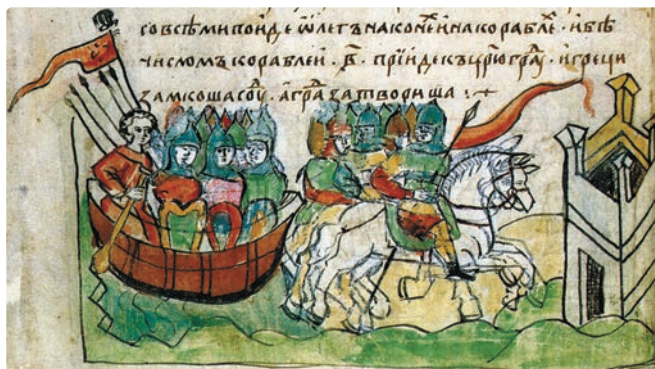 со всѣми поиде ѡлегъ на конеи и на кораблѣ · и бѣ
числомъ кораблеи · в҃ · прїиде къ цр҃югра · и греци
замкоша соу · а гра затвориша :·